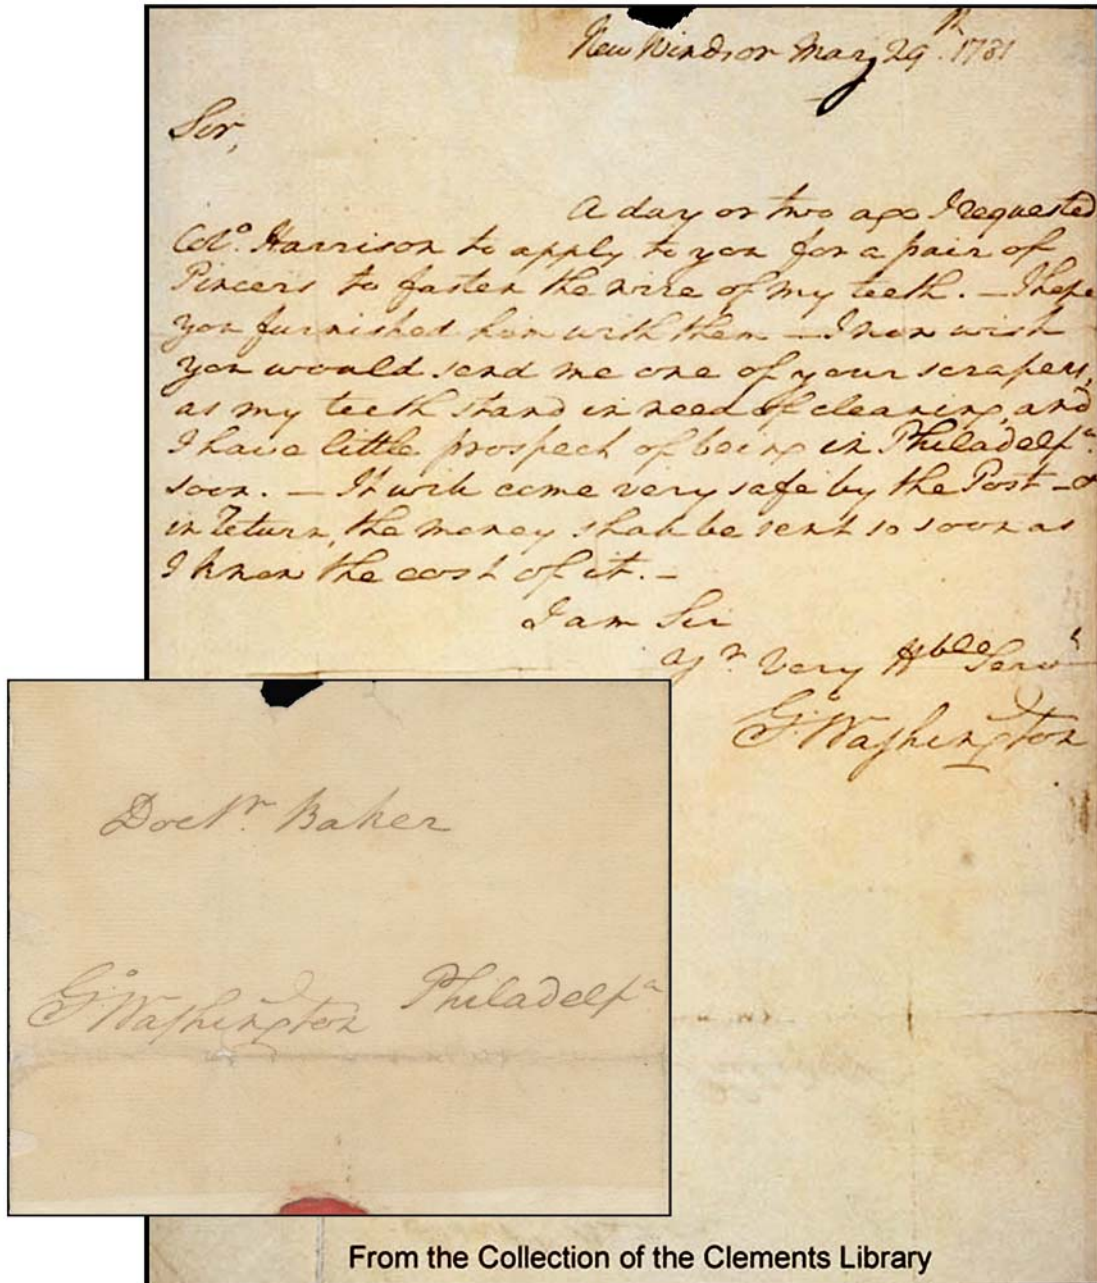 New Windsor May 29th. 1781
Sir,
A day or two ago I requested
Colo. Harrison to apply to you for a pair of
Pincers to fasten the wire of my teeth. — I hope
you furnished him with them — I now wish
you would send me one of your scrapers,
as my teeth stand in need of cleaning, and
I have little prospect of being in Philadelpa.
soon. — It will come very safe by the Post — &
in return, the money shall be sent so soon as
I know the cost of it. —
I am Sir
Yr. Very Hble Servt
Go: Washington
Doctr. Baker
Go: Washington Philadelpa
From the Collection of the Clements Library